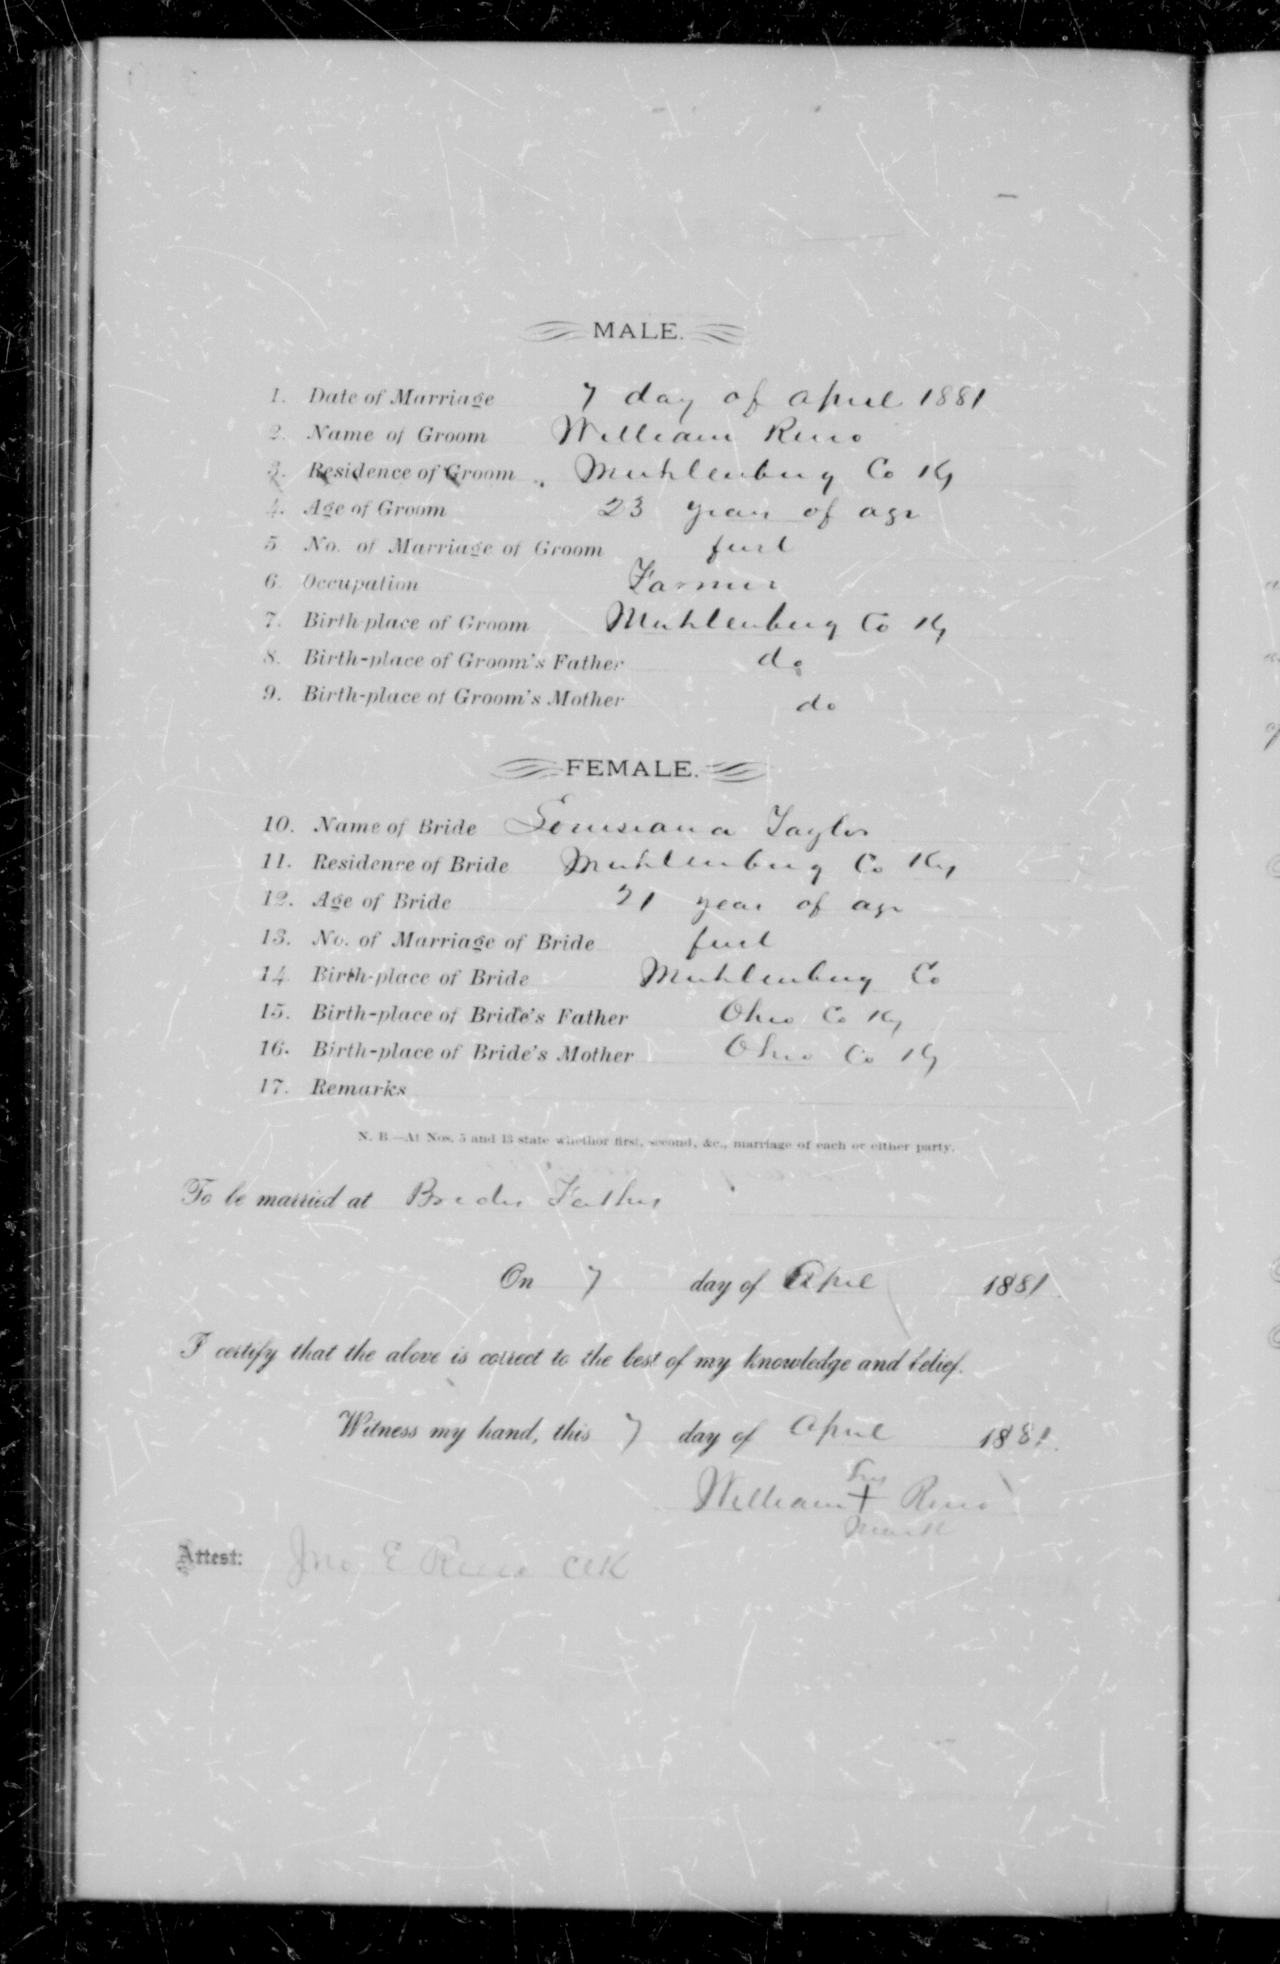 MALE.
1. Date of Marriage 7 day of April 1881
2. Name of Groom William Reno
3. Residence of Groom Muhlenburg Co Ky
4. Age of Groom 23 years of age
5 No. of Marriage of Groom first
6. Occupation Farmer
7. Birth-place of Groom Muhlenburg Co Ky
8. Birth-place of Groom's Father do
9. Birth-place of Groom's Mother do
FEMALE.
10. Name of Bride Louisiana Taylor
11. Residence of Bride Muhlenburg Co Ky
12. Age of Bride 21 years of age
13. No. of Marriage of Bride first
14. Birth-place of Bride Muhlenburg Co
15. Birth-place of Bride's Father Ohio Co Ky
16. Birth-place of Bride's Mother Ohio Co Ky
17. Remarks
N. B.—At Nos. 5 and 13 state whethor first, second, &c., marriage of each or either party.
To be married at Brides Fathers
On 7 day of April 1881
I certify that the above is correct to the best of my knowledge and belief.
Witness my hand, this 7 day of April 1881.
his
William + Reno
mark
Attest: Jno E Reno Clk